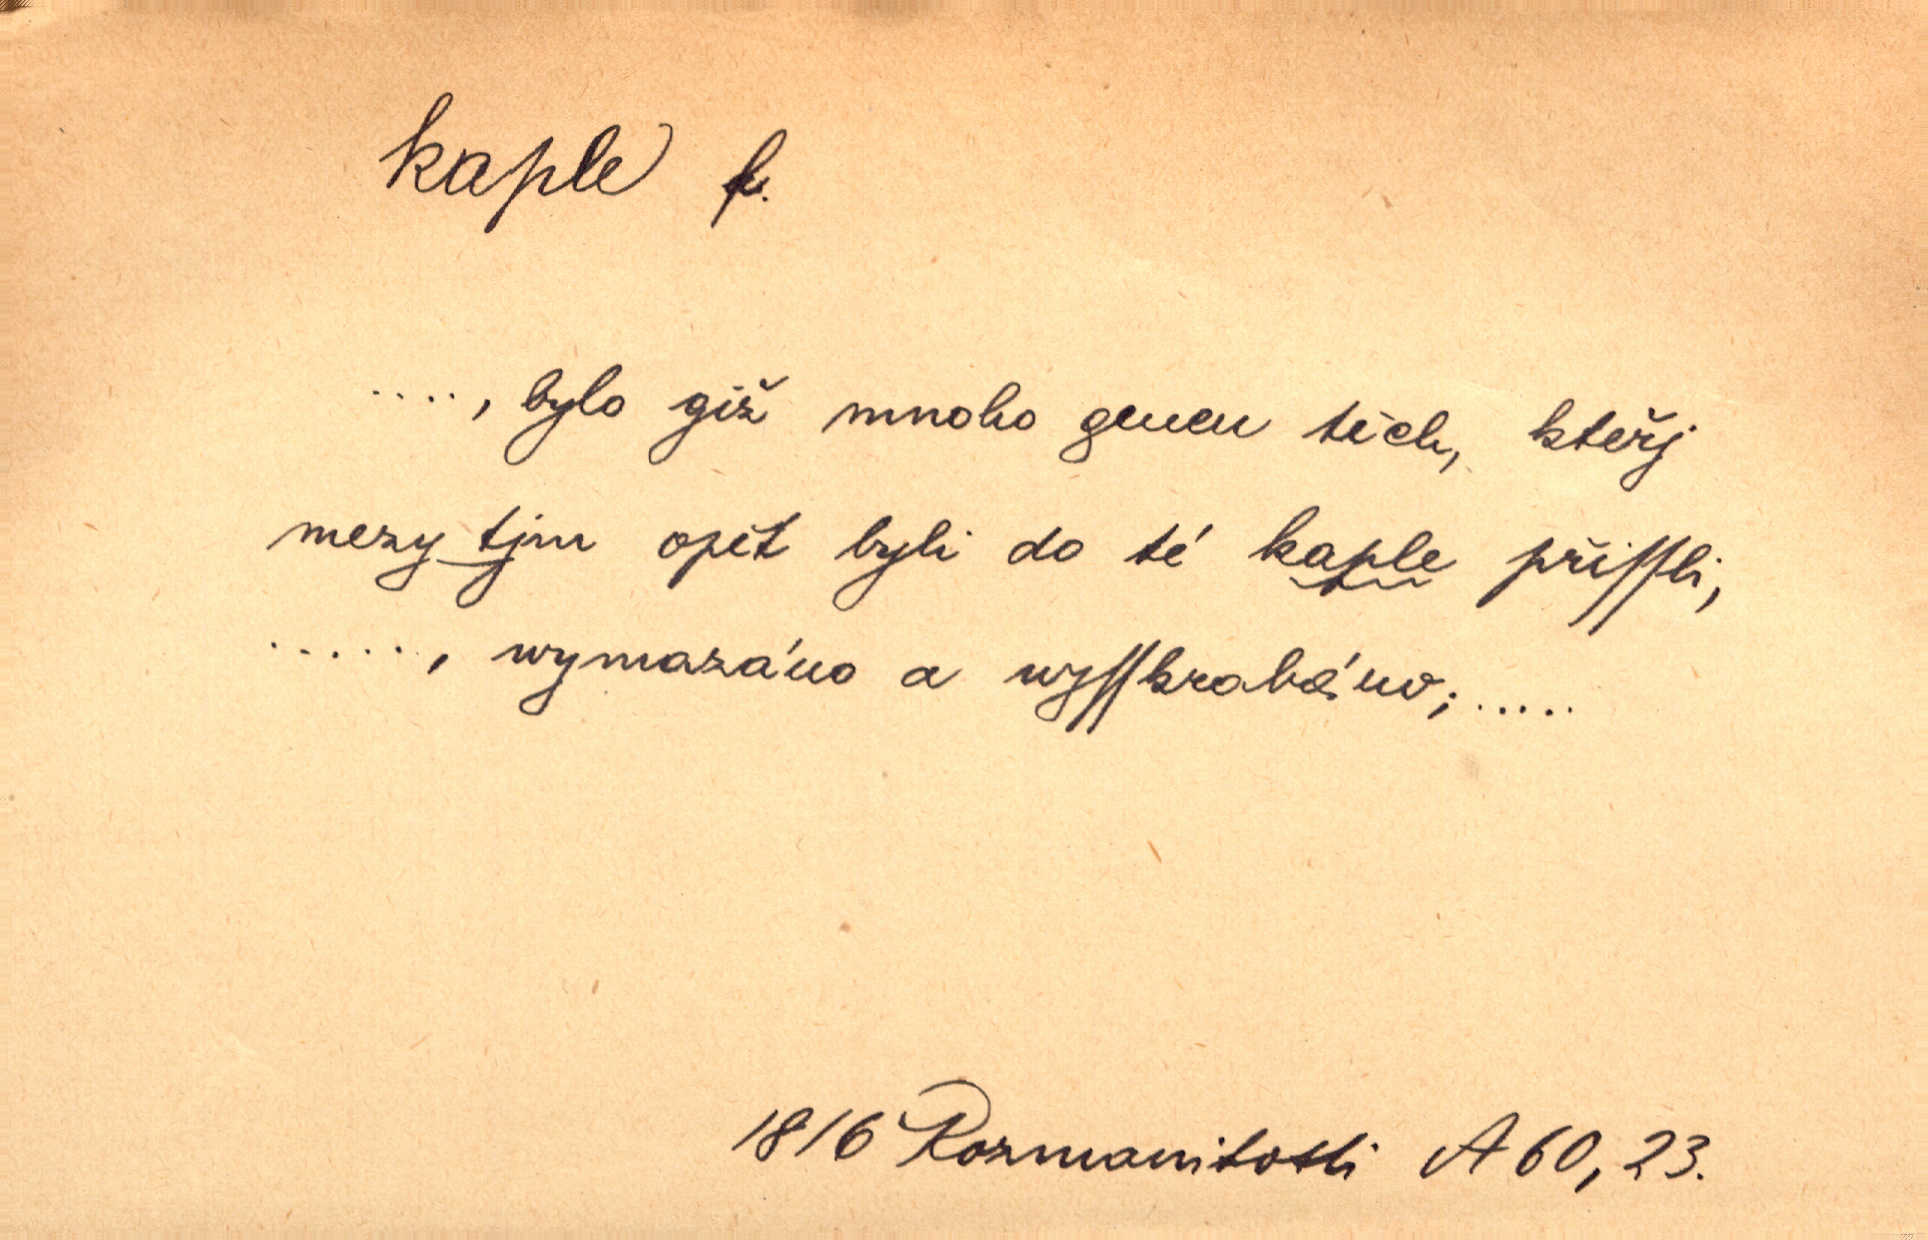 kaple f.
...., bylo giž mnoho genen těch, kteřj
mezy tjm opět byli do té kaple přiſſli,
....., wymazáno a wyſſkrabáno; .....
1816 Rozmanitosti A 60, 23.